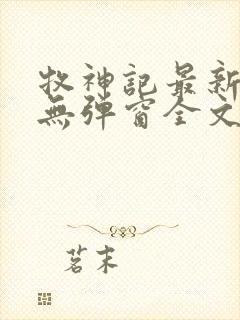 牧神記最新
無彈窗全文
茗末